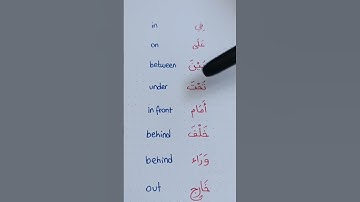 in في
on عَلَى
between بَيْنَ
under تَحْتَ
in front أَمَام
behind خَلْفَ
behind وَرَاء
out خَارِج